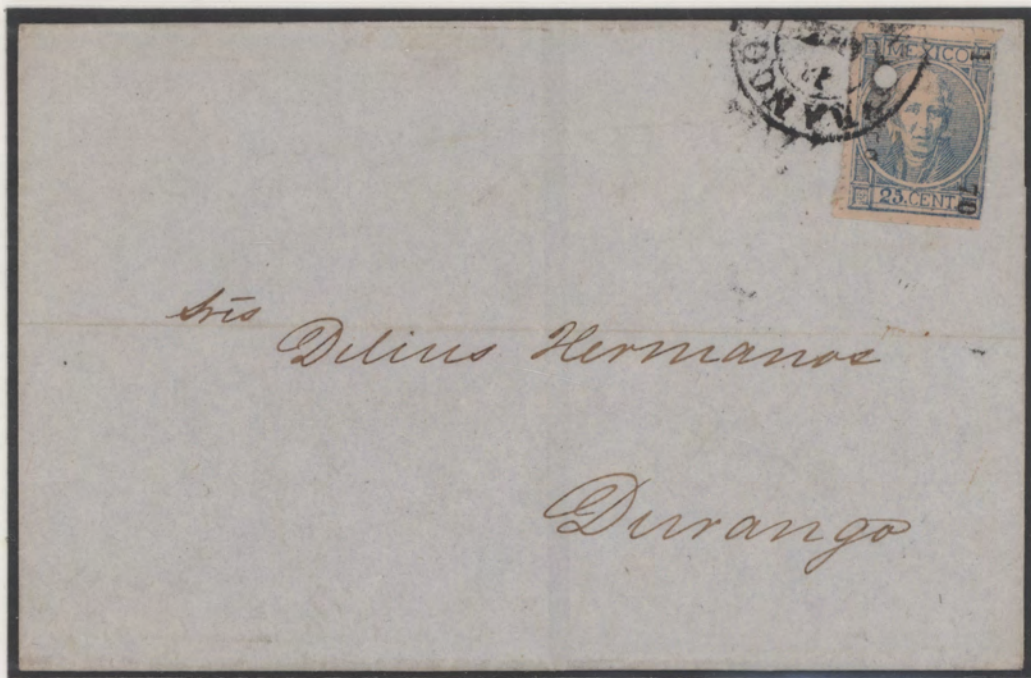 MEXICO
25.CENT
70
Sres
Delius Hermanos
Durango